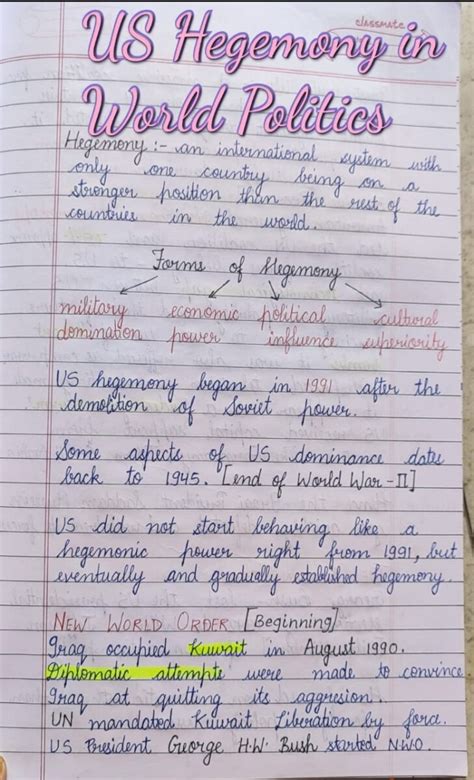 classmate
US Hegemony in
World Politics
Hegemony :- an international system with
only one country being on a
stronger position than the rest of the
countries in the world.
Forms of Hegemony
military economic political cultural
domination power influence superiority
US hegemony began in 1991 after the
demolition of Soviet power.
Some aspects of US dominance dates
back to 1945. [end of World War - II]
US did not start behaving like a
hegemonic power right from 1991, but
eventually and gradually established hegemony.
NEW WORLD ORDER [Beginning]
Iraq occupied Kuwait in August 1990.
Diplomatic attempts were made to convince
Iraq at quitting its aggresion.
UN mandated Kuwait liberation by force.
US President George H.W. Bush started NWO.